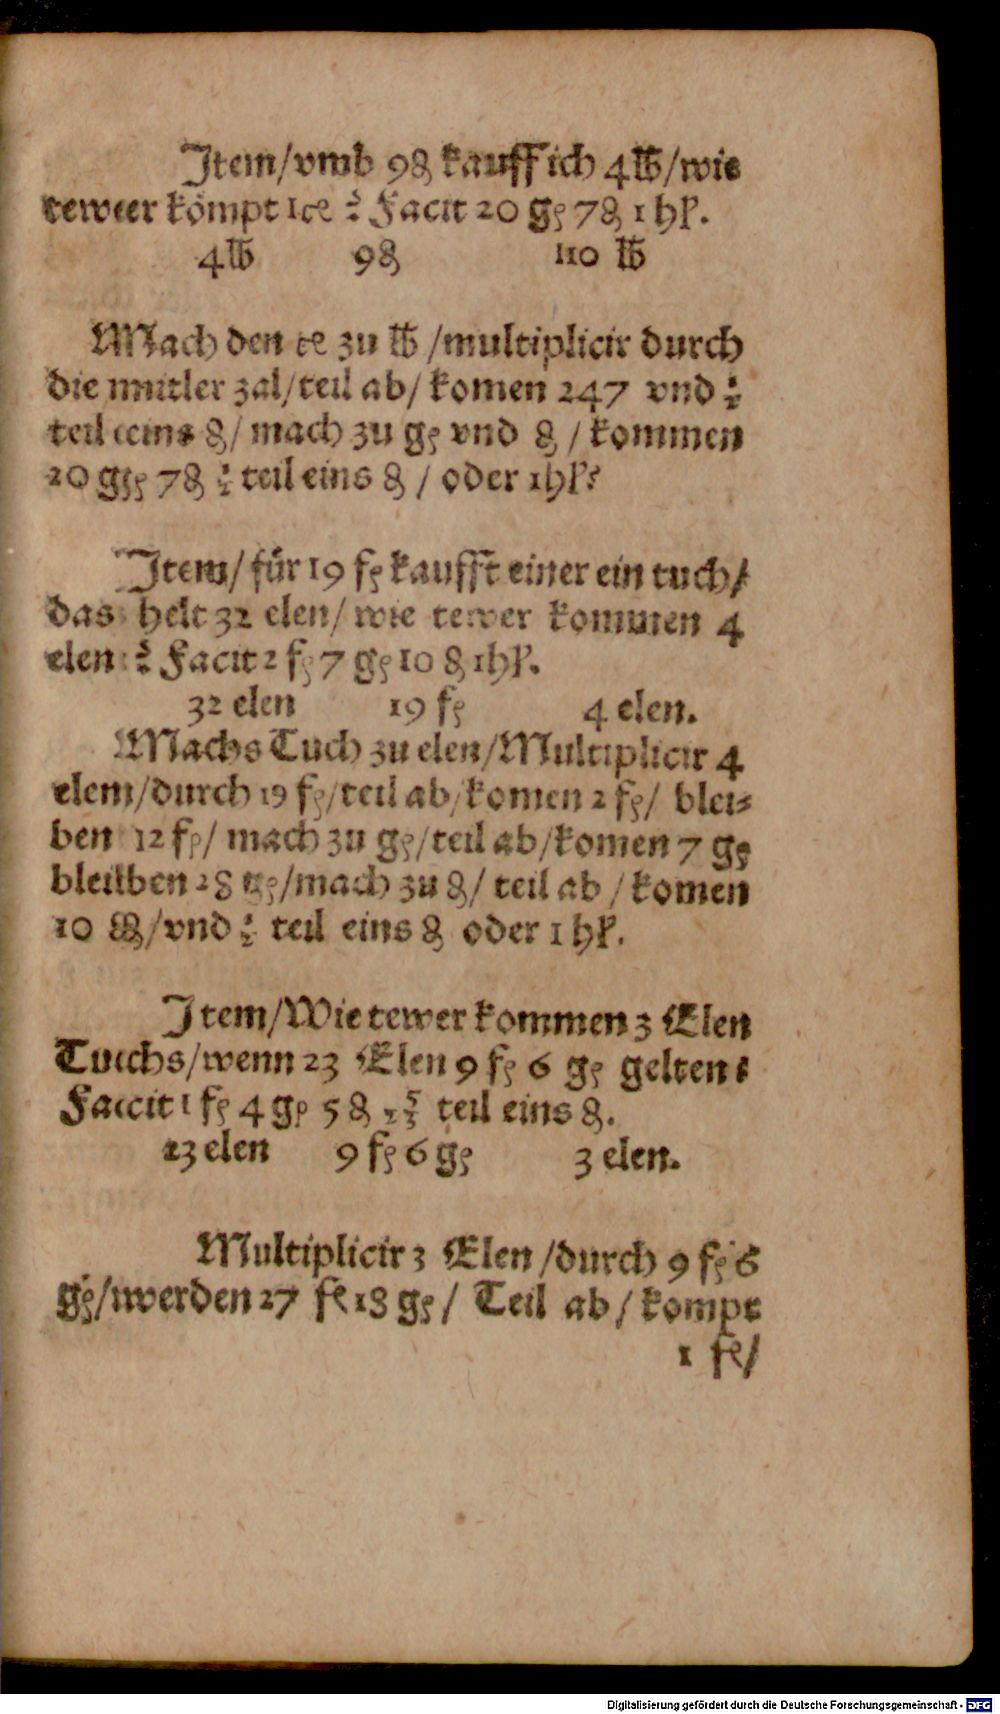 Jtem/vmb 9₰ kauff ich 4 ℔/wie
teweer kömpt 1 ce ? Facit 20 gꝭ 7₰ 1 hꝉ.
4℔ 9₰ 110 ℔
Mach den ce zu ℔ /multiplicir durch
die mitler zal/teil ab/ komen 247 vnd ½
teil eins ₰/ mach zu gꝭ vnd ₰ / kommen
20 gꝭ 7₰ ½ teil eins ₰ / oder 1hꝉ?
Jtem/ für 19 fꝭ kaufft einer ein tuch/
das helt 32 elen/ wie tewer kommen 4
elen ? Facit 2 fꝭ 7 gꝭ 10 ₰ 1hꝉ.
32 elen 19 fꝭ 4 elen.
Machs Tuch zu elen/Multiplicir 4
elem/durch 19 fꝭ/teil ab/komen 2 fꝭ/ blei=
ben 12 fꝭ/ mach zu gꝭ/teil ab/komen 7 gꝭ
bleilben 28 gꝭ/mach zu ₰/ teil ab / komen
10 ₰/vnd ½ teil eins ₰ oder 1 hꝉ.
Jtem/Wie tewer kommen 3 Elen
Tucchs/wenn 23 Elen 9 fꝭ 6 gꝭ gelten?
Faccit 1 fꝭ 4 gꝭ 5 ₰ 5/23 teil eins ₰.
23 elen 9 fꝭ 6 gꝭ 3 elen.
Multiplicir 3 Elen /durch 9 fꝭ 6
gꝭ/werden 27 fꝭ 18 gꝭ/ Teil ab/ kompt
1 fꝭ/
Digitalisierung gefördert durch die Deutsche Forschungsgemeinschaft - DFG